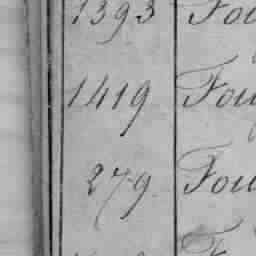 1393 Fou
1419 Fou
279 Fou